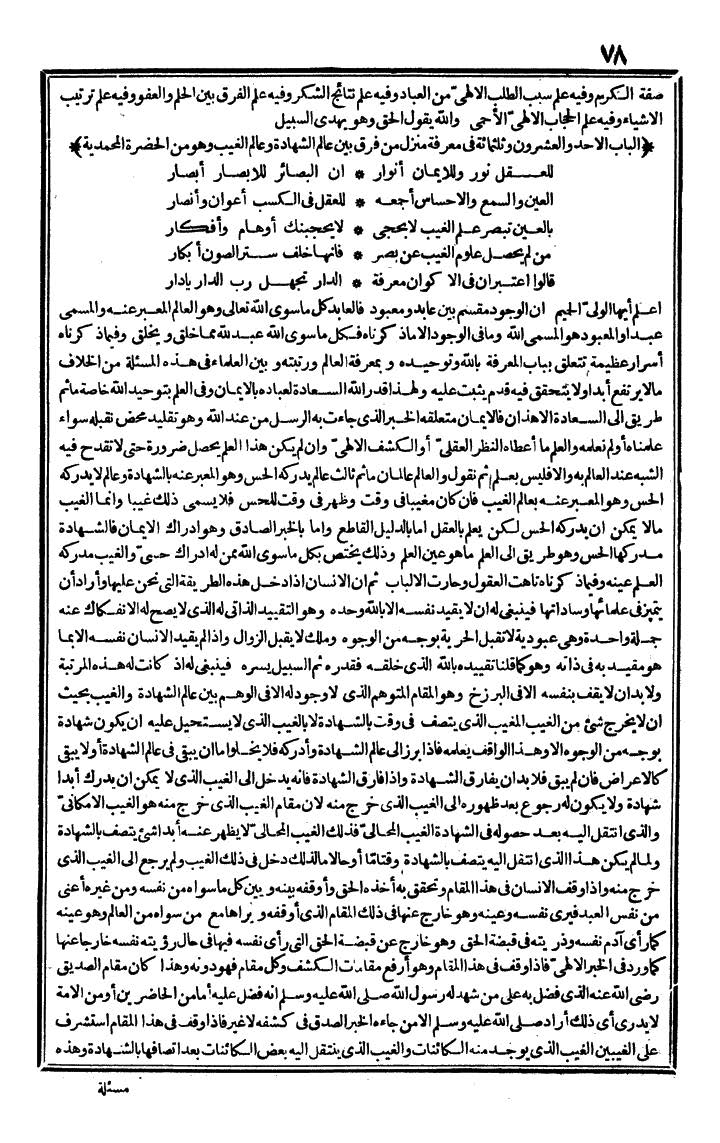 ٧٨
صفة الكريم وفيه علم سبب الطلب الالهىّ من العباد وفيه علم نتائج الشكر وفيه علم الفرق بين الحلم والعفو وفيه علم ترتيب
الاشياء وفيه علم الحجاب الالهىّ الأحمى والله يقول الحق وهو يهدى السبيل
﴿الباب الاحد والعشرون وثلثمائة فى معرفة منزل من فرق بين عالم الشهادة وعالم الغيب وهو من الحضرة المحمدية﴾
للعقل نور وللايمان أنوار * ان البصائر للابصار أبصار
العين والسمع والاحساس أجمعه * للعقل فى الكسب أعوان وأنصار
بالعين تبصر علم الغيب لا بحجى * لا يحجبنك أوهام وأفكار
من لم يحصل علوم الغيب عن بصر * فانها خلف ستر الصون أبكار
قالوا اعتبر ان فى الاكوان معرفة * الدار تجهل رب الدار يادار
اعلم أيها الولىّ الحميم ان الوجود مقسم بين عابد ومعبود فالعابد كل ما سوى الله تعالى وهو العالم المعبر عنه والمسمى
عبدا والمعبود هو المسمى الله وما فى الوجود الا ما ذكرناه فكل ما سوى الله عبد لله مما خلق ويخلق وفيما ذكرناه
أسرار عظيمة تتعلق بباب المعرفة بالله وتوحيده وبمعرفة العالم ورتبته وبين العلماء فى هذه المسئلة من الخلاف
ما لا يرتفع أبدا ولا يتحقق فيه قدم يثبت عليه ولهذا قدر الله السعادة لعباده بالايمان وفى العلم بتوحيد الله خاصة ما ثم
طريق الى السعادة الا هذان فالايمان متعلقه الخبر الذى جاءت به الرسل من عند الله وهو تقليد محض نقبله سواء
علمناه أو لم نعلمه والعلم ما أعطاه النظر العقلىّ أو الكشف الالهىّ وان لم يكن هذا العلم يحصل ضرورة حتى لا تقدح فيه
الشبه عند العالم به والا فليس بعلم ثم نقول والعالم عالمان ما ثم ثالث عالم يدركه الحس وهو المعبر عنه بالشهادة وعالم لا يدركه
الحس وهو المعبر عنه بعالم الغيب فان كان مغيبا فى وقت وظهر فى وقت للحس فلا يسمى ذلك غيبا وانما الغيب
ما لا يمكن ان يدركه الحس لكن يعلم بالعقل اما بالدليل القاطع واما بالخبر الصادق وهو ادراك الايمان فالشهادة
مدركها الحس وهو طريق الى العلم ما هو عين العلم وذلك يختص بكل ما سوى الله ممن له ادراك حسىّ والغيب مدركه
العلم عينه وفيما ذكرناه تاهت العقول وحارت الالباب ثم ان الانسان اذا دخل هذه الطريقة التى نحن عليها وأراد أن
يتميز فى علمائها وساداتها فينبغى له ان لا يقيد نفسه الا بالله وحده وهو التقييد الذاتى له الذى لا يصح له الانفكاك عنه
جملة واحدة وهى عبودية لا تقبل الحرية بوجه من الوجوه وملك لا يقبل الزوال واذا لم يقيد الانسان نفسه الا بما
هو مقيد به فى ذاته وهو كما قلنا تقييده بالله الذى خلقه فقدره ثم السبيل يسره فينبغى له اذ كانت له هذه المرتبة
ولا بد ان لا يقف بنفسه الا فى البرزخ وهو المقام المتوهم الذى لا وجود له الا فى الوهم بين عالم الشهادة والغيب بحيث
ان لا يخرج شئ من الغيب المغيب الذى يتصف فى وقت بالشهادة لا بالغيب الذى لا يستحيل عليه ان يكون شهادة
بوجه من الوجوه الا وهذا الواقف يعلمه فاذا برز الى عالم الشهادة وأدركه فلا يخلو اما ان يبقى فى عالم الشهادة أو لا يبقى
كالاعراض فان لم يبق فلا بد ان يفارق الشهادة واذا فارق الشهادة فانه يدخل الى الغيب الذى لا يمكن ان يدرك أبدا
شهادة ولا يكون له رجوع بعد ظهوره الى الغيب الذى خرج منه لان مقام الغيب الذى خرج منه هو الغيب الامكانىّ
والذى انتقل اليه بعد حصوله فى الشهادة الغيب المحالىّ فذلك الغيب المحالىّ لا يظهر عنه أبدا شئ يتصف بالشهادة
ولما لم يكن هذا الذى انتقل اليه يتصف بالشهادة وقتا ما أو حالا ما لذلك دخل فى ذلك الغيب ولم يرجع الى الغيب الذى
خرج منه واذا وقف الانسان فى هذا المقام وتحقق به أخذه الحق وأوقفه بينه وبين كل ما سواه من نفسه ومن غيره أعنى
من نفس العبد فيرى نفسه وعينه وهو خارج عنها فى ذلك المقام الذى أوقفه ويراها مع من سواه من العالم وهو عينه
كما رأى آدم نفسه وذريته فى قبضة الحق وهو خارج عن قبضة الحق التى رأى نفسه فيها فى حال رؤيته نفسه خارجا عنها
كما ورد فى الخبر الالهىّ فاذا وقف فى هذا المقام وهو أرفع مقامات الكشف وكل مقام فهو دونه وهذا كان مقام الصديق
رضى الله عنه الذى فضل به على من شهد له رسول الله صلى الله عليه وسلم انه فضل عليه أما من الحاضرين أو من الامة
لا يدرى أى ذلك أراد صلى الله عليه وسلم الا من جاءه الخبر الصدق فى كشفه لا غير فاذا وقف فى هذا المقام استشرف
على الغيبين الغيب الذى يوجد منه الكائنات والغيب الذى ينتقل اليه بعض الكائنات بعد اتصافها بالشهادة وهذه
مسئلة